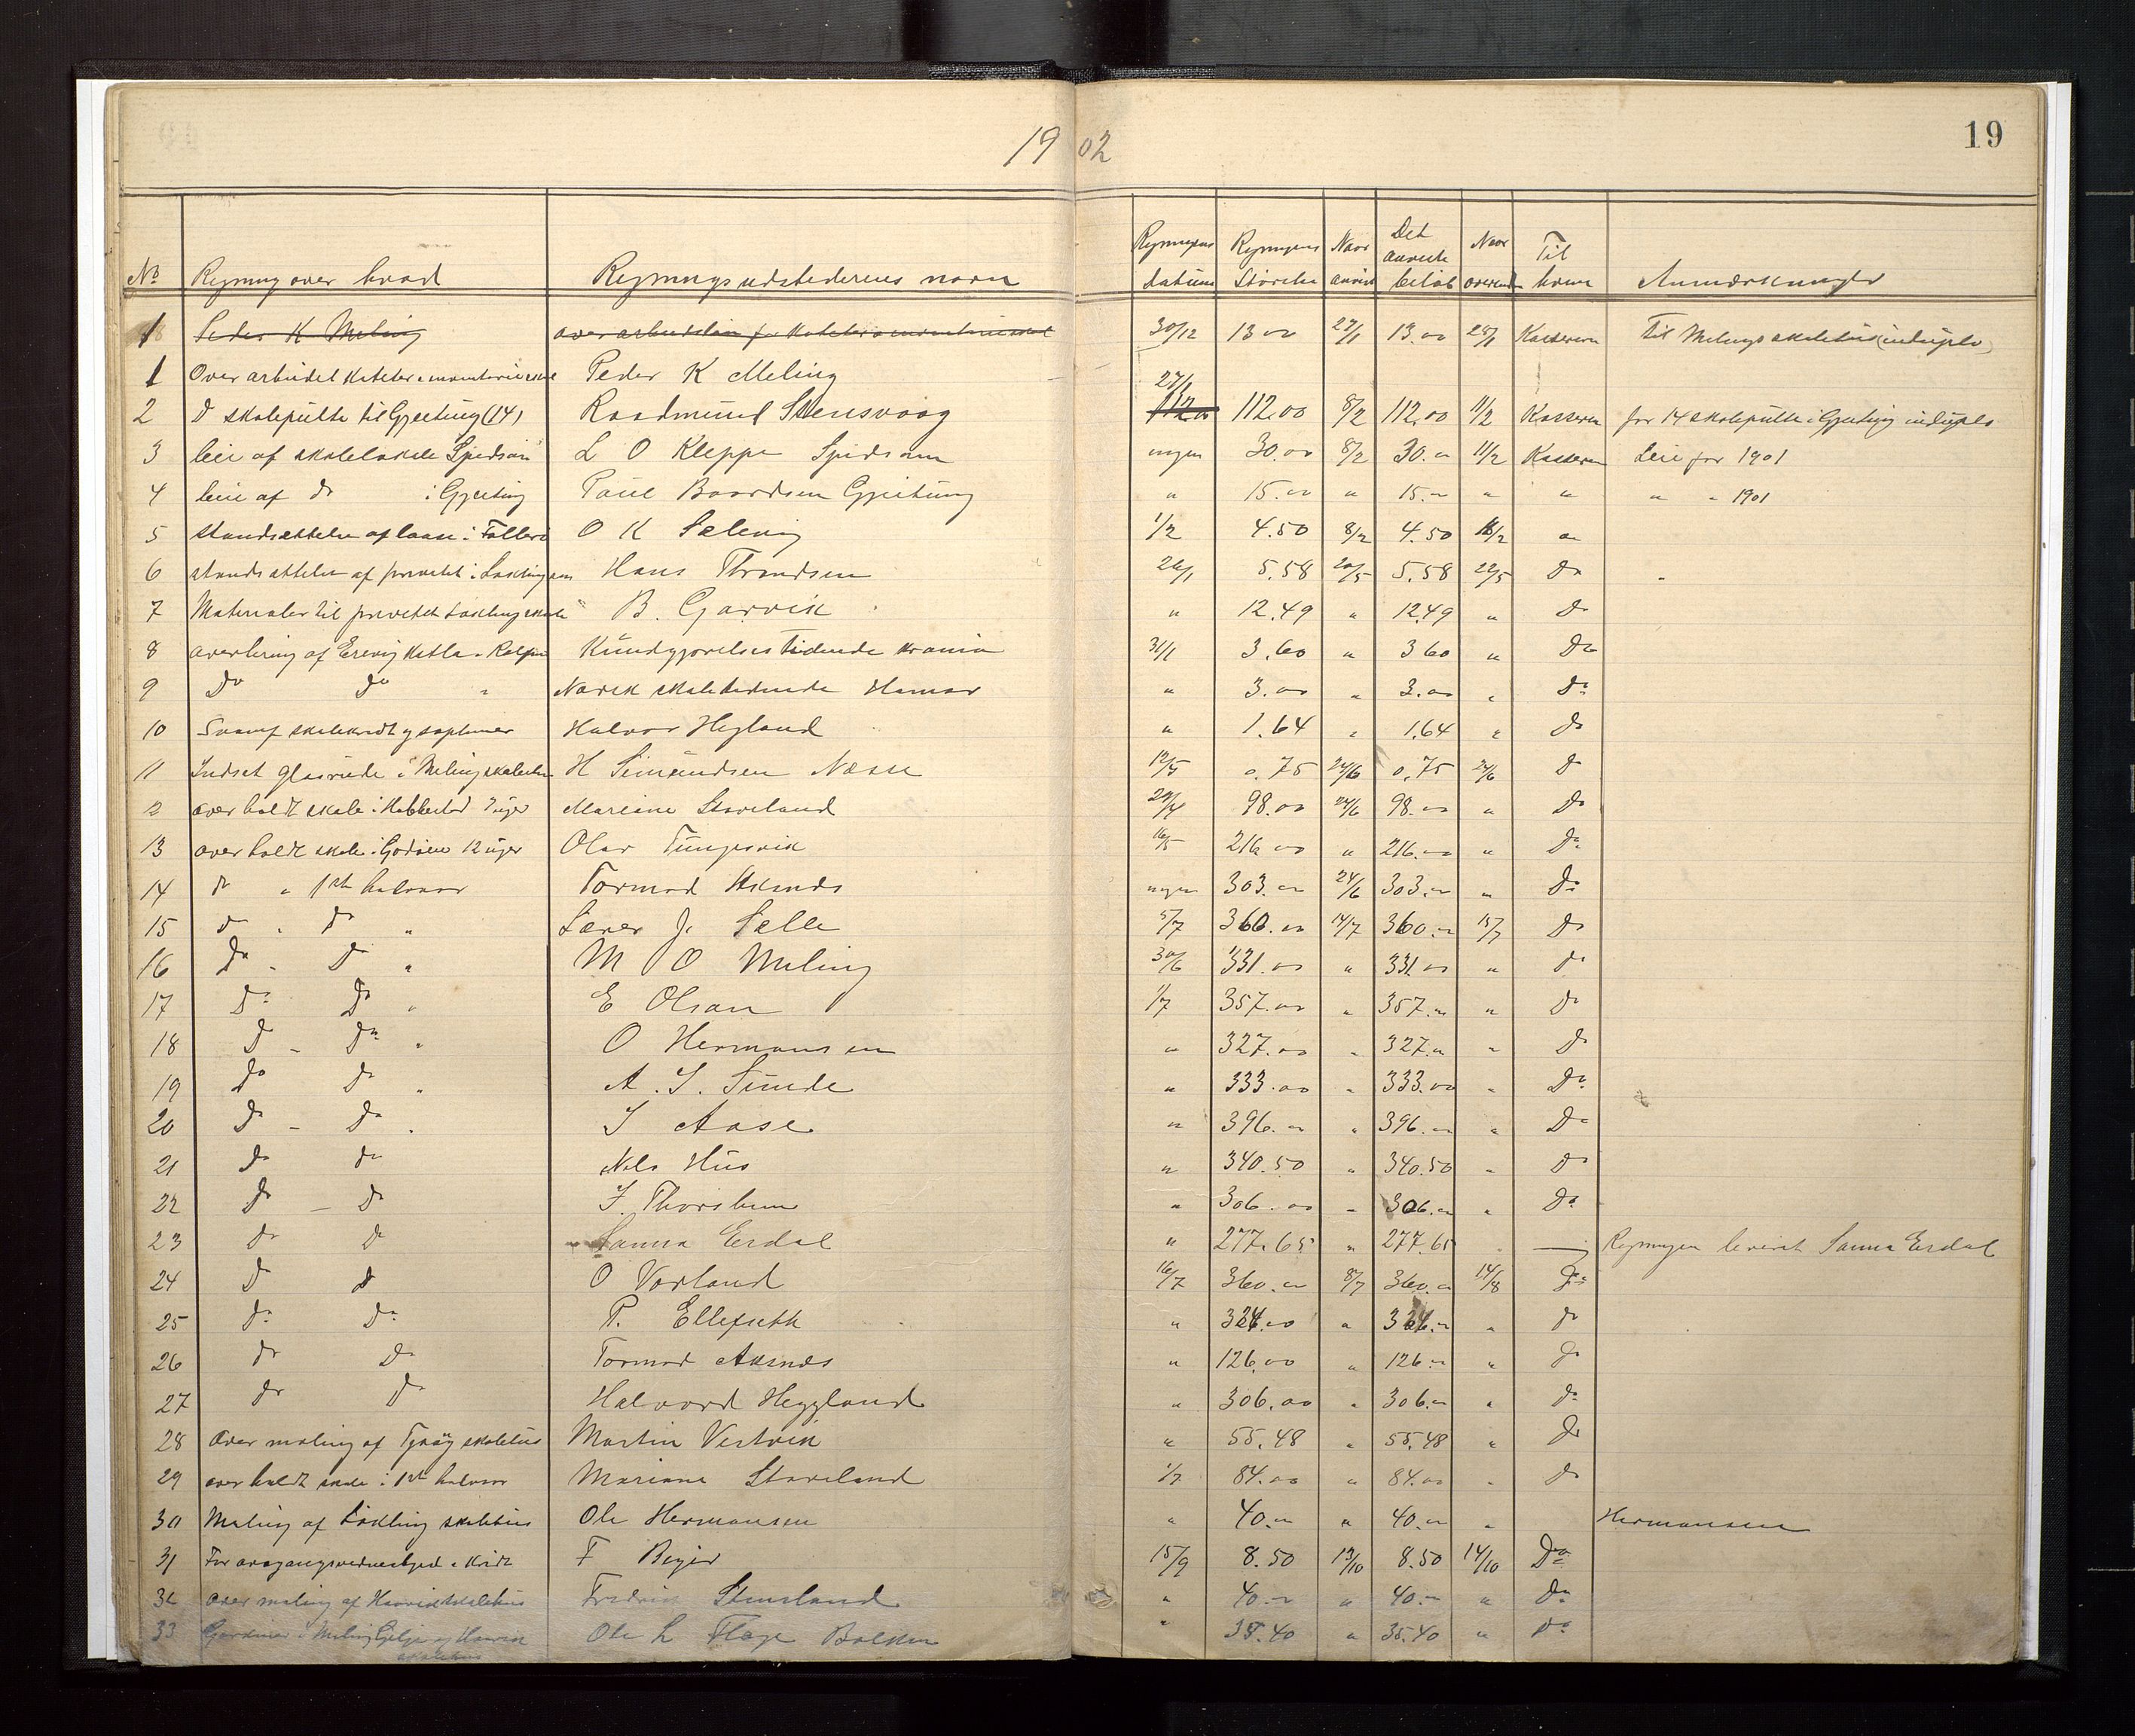 1902
19
No Regning over hvad Regningsudstederens navn Regningens datum Regningens Størrelse Naar anvist Det anviste beløb Naar oversendt Til hvem Anmærkninger
1 Peder K Meling over arbeidsløn for kateter 30/12 13 00 27/1 13.00 28/1 Kassereren Til Melings skolehus (induplo)
1 Over arbeidet kateter Peder K Meling
2 Do skolepulte til Gjeitung (14) Raadmund Stensvaag 27/1 112.00 112.00 8/2 112.00 11/2 Kasseren for 14 skolepulte i Gjeitung induplo
3 leie af skolelokale Spidsøen L O Kleppe Spidsøen ingen 30.00 8/2 30.00 11/2 Kasseren Leie for 1901
4 leie af do i Gjeitung Poul Baardsen Gjeitung " 15.00 " 15.00 " " " " 1901
5 O K Sælevig 1/2 4.50 8/2 4.50 11/2 "
6 istandsættelse af privetet i Løkling Hans Throndsen 26/1 5.58 20/5 5.58 22/5 Do
7 Materialer til privetet Løkling skole B. Gjarvik " 12.49 " 12.49 " Do
8 Kundgjørelsestidende Krania 31/1 3.60 " 3 60 " Do
9 Do Do " Norsk skoletidende Hamar " 3.00 " 3.00 " Do
10 Svamp skolekridt Halvor Hegland " 1.64 " 1.64 " Do
11 Indsat glasrude i Meling skolehus H Simundsen Næsse 12/5 0.75 24/6 0.75 24/6 Do
2 over holdt skole i 7 uger Mariane Staveland 29/4 98.00 24/6 98.00 " Do
13 over holdt skole i Godøen 12 uger Olav Tungesvik 16/5 216.00 " 216.00 " Do
14 do " 1ste halvaar Tormod Aksnes ingen 303.00 24/6 303.00 " Do
15 do " do " Lærer J. Sælle 5/7 360.00 14/7 360.00 15/7 Do
16 Do " Do " M O Meling 30/6 331.00 " 331.00 " Do
17 Do Do " E Olsen 1/7 357.00 " 357.00 " Do
18 Do " Do " O Hermansen " 327.00 " 327.00 " Do
19 Do Do " A. S. Sunde " 333.00 " 333.00 " Do
20 Do " Do " I Aase " 396.00 " 396.00 " Do
21 Do Do Nels Hus " 340.50 " 340.50 " Do
22 Do — Do I. Thorsheim " 306.00 " 306.00 " Do
23 Do Do Sanna Erdal " 277.65 " 277.65 " — Regningen leveret Sanna Erdal
24 Do Do O Vorland 16/7 360.00 8/7 360.00 14/8 Do
25 Do Do P. Ellefseth " 324.00 " 324.00 " Do
26 Do Do Tormod Aksnes " 126.00 " 126.00 " Do
27 Do Do Halvord Heggland " 306.00 " 306.00 " Do
28 Over maling af skolehus Martin Vestvik " 55.48 " 55.48 " Do
29 over holdt skole i 1ste halvaar Mariane Staveland 1/7 84.00 " 84.00 " Do
30 Maling af Løkling skolehus Ole Hermansen " 40.00 " 40.00 " Hermansen
31 For avgangsvidnesbyrd & Kridt F Beyer 15/9 8.50 13/10 8.50 14/10 Do
32 over maling af skolehus Fredrik Stensland " 40.00 " 40.00 " Do
33 Gardiner i Meling og skolehus Ole L Flage Bolken " 35.40 " 35.40 " Do